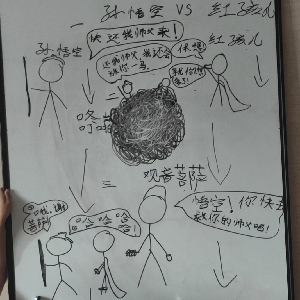 孙悟空 VS 红孩儿
一
孙悟空
快还我师父来！
红孩儿
休想！
还我师父，我还会
饶你一马
二
三
观音菩萨
悟空！你快去
救你的师父吧！
哦，谢
菩萨
哈哈哈